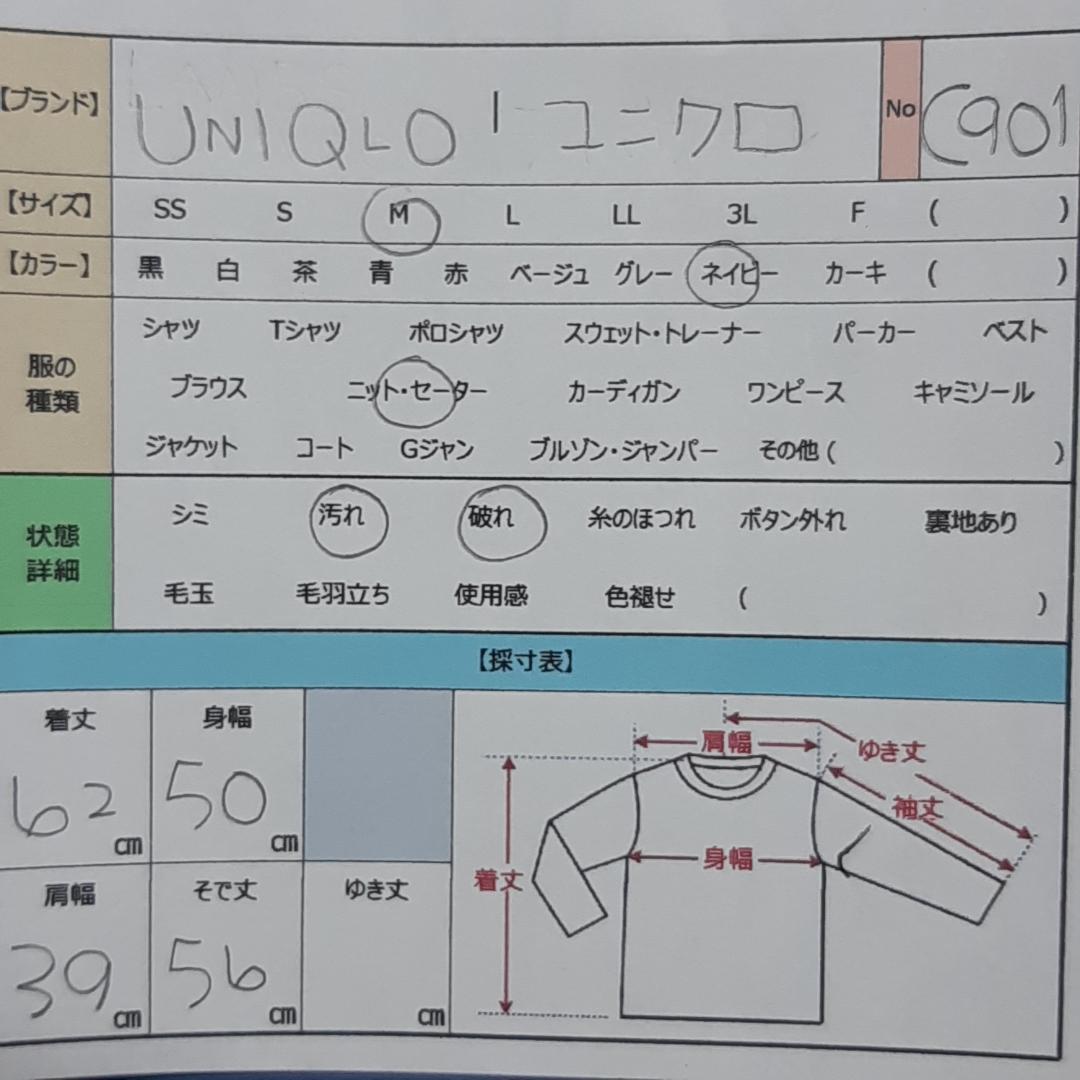 【ブランド】 UNIQLO ' ユニクロ No C901
【サイズ】 SS S M L LL 3L F ( )
【カラー】 黒 白 茶 青 赤 ベージュ グレー ネイビー カーキ ( )
服の種類
シャツ Tシャツ ポロシャツ スウェット・トレーナー パーカー ベスト
ブラウス ニット・セーター カーディガン ワンピース キャミソール
ジャケット コート Gジャン ブルゾン・ジャンパー その他 ( )
状態詳細
シミ 汚れ 破れ 糸のほつれ ボタン外れ 裏地あり
毛玉 毛羽立ち 使用感 色褪せ ( )
【採寸表】
着丈 身幅
62 cm 50 cm
肩幅 そで丈 ゆき丈
39 cm 56 cm cm
肩幅 ゆき丈
袖丈
着丈 身幅